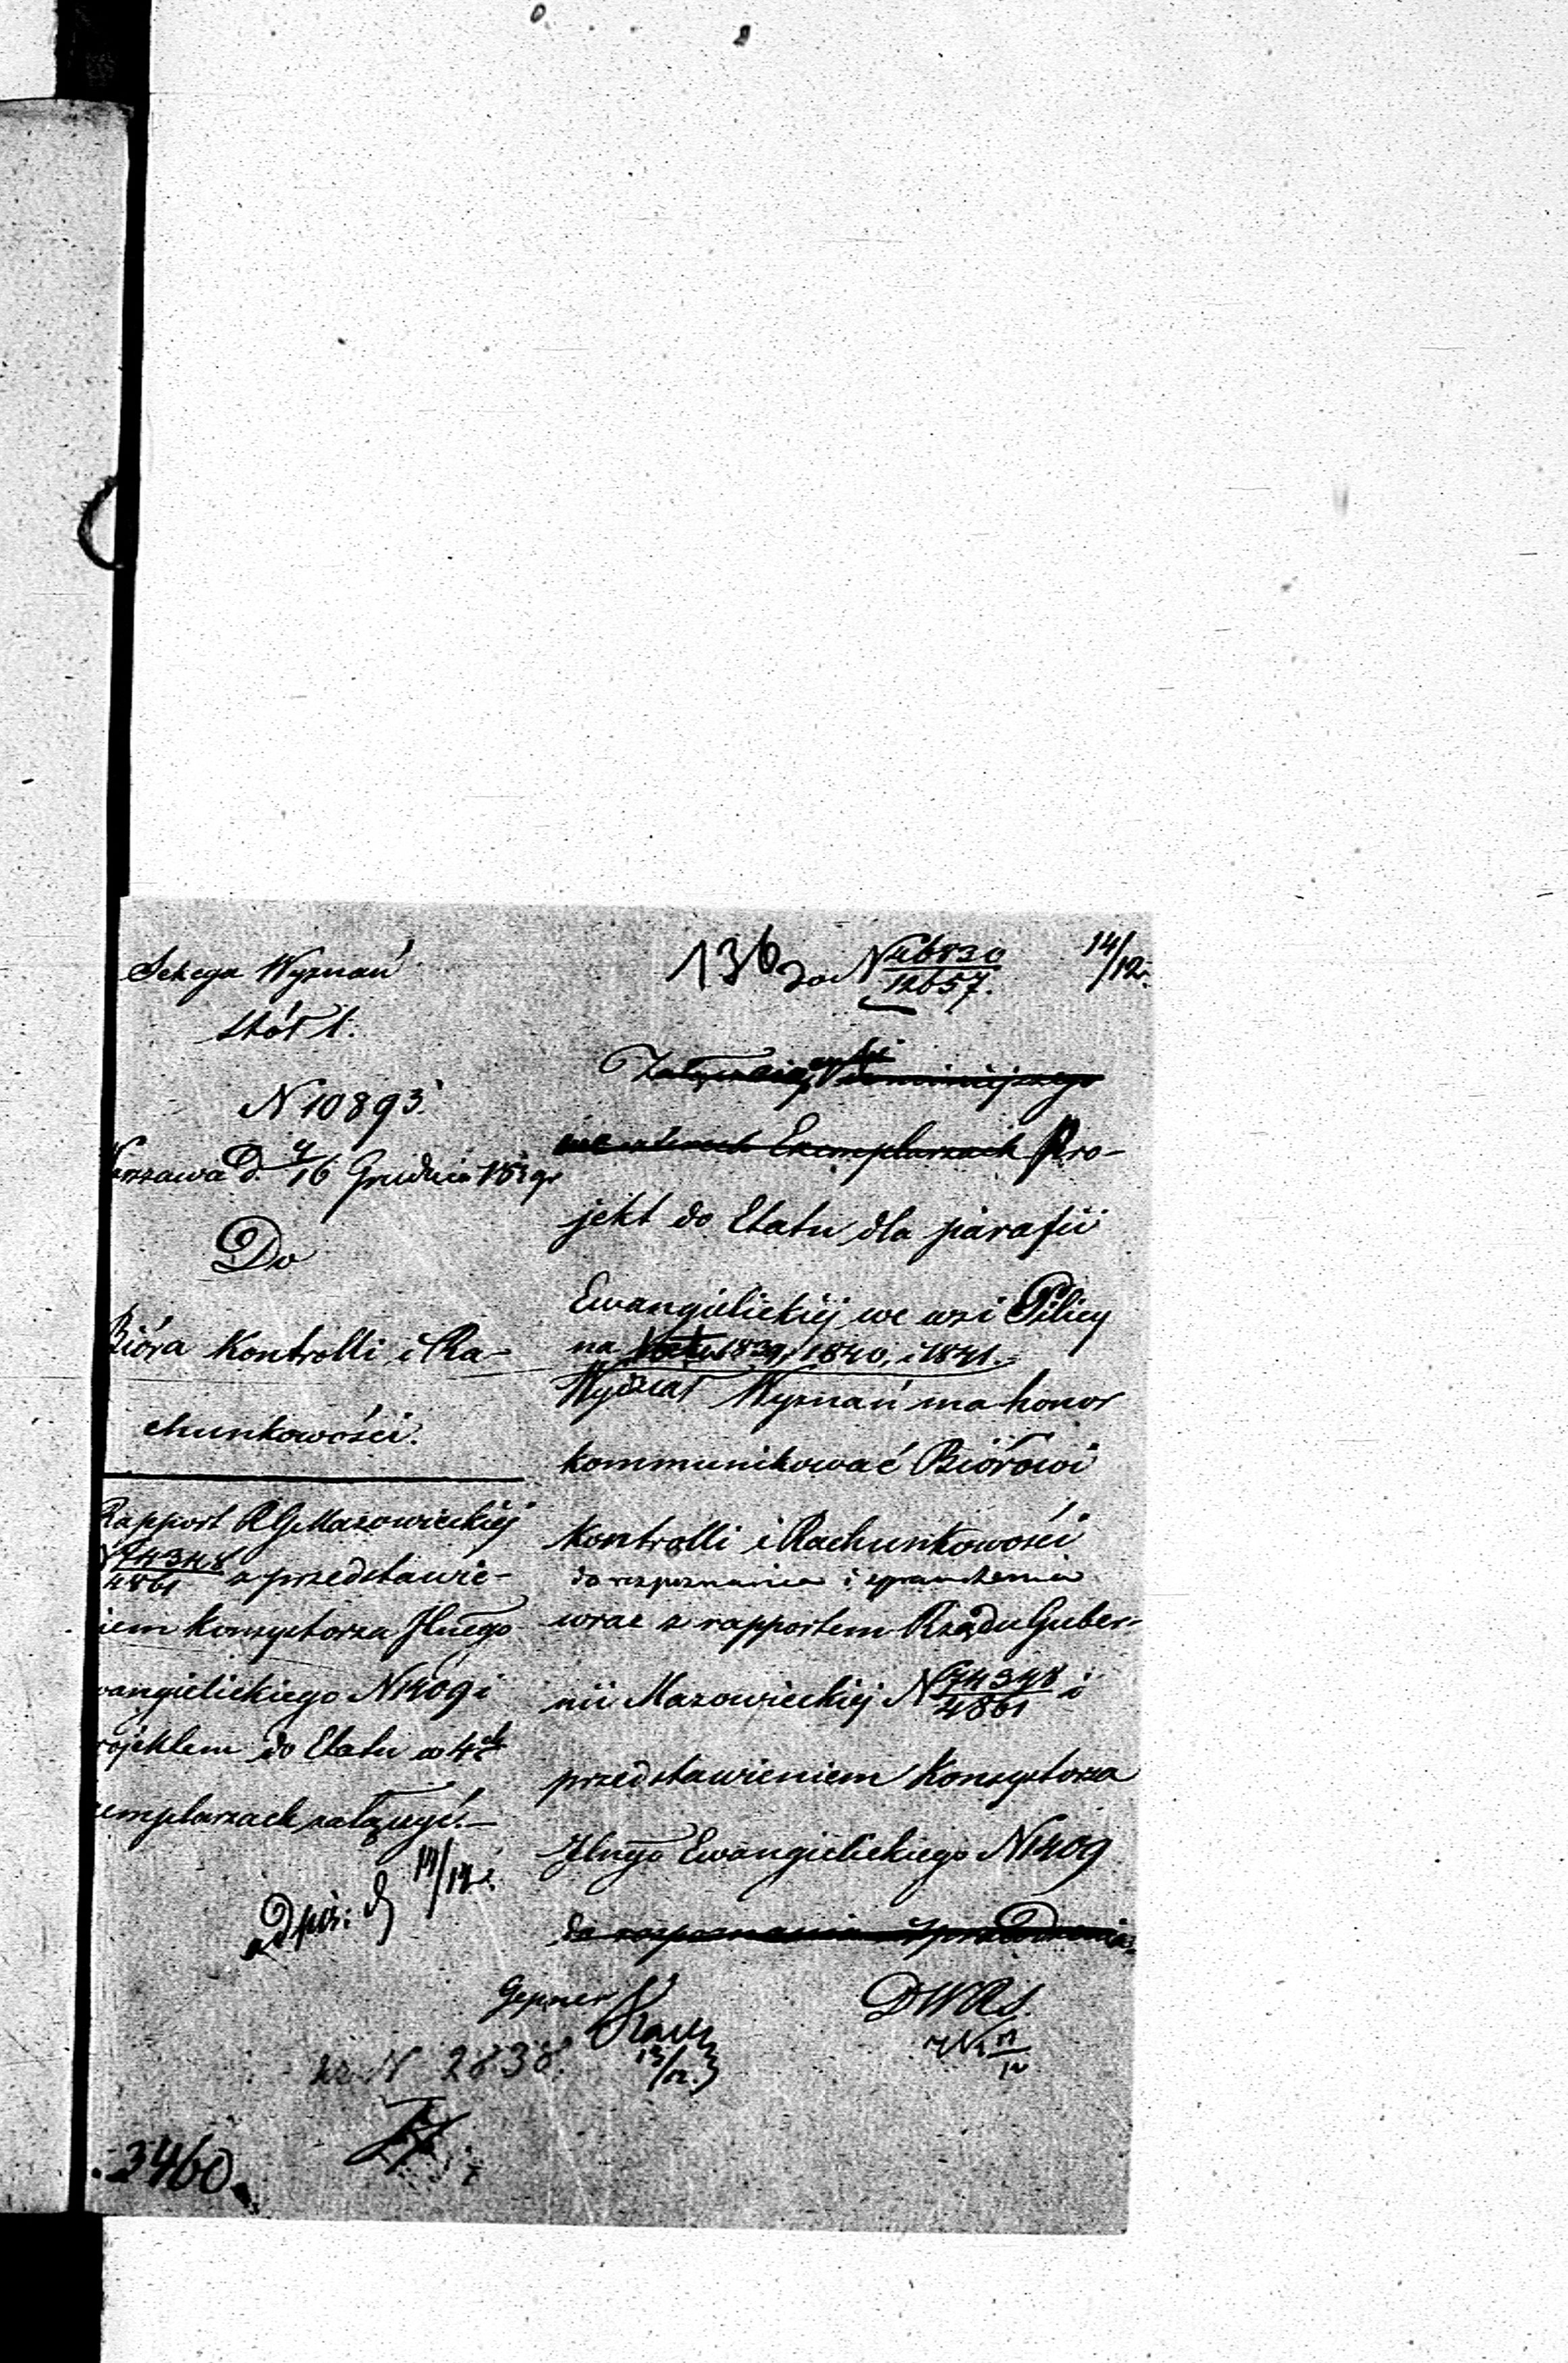 Sekcya Wyznań
Stół 1.
N 10893.
Warszawa d. 4/16 Grudnia 1839 r
Do
Bióra Kontrolli i Ra-
chunkowości.
Rapport RGMazowieckiej
N 74348/4861 z przedstawie-
iem Konsystorza Jlnego
wangielickiego N 1409 i
rojektem do Etatu w 4ch
emplarzach załączyć.—
14/12.
136 do N 26830/12657.
14/12.
Exemplarzach Pro-
jekt do Etatu dla parafii
Ewangielickiej we wsi Pilicy
na 1839, 1840, i 1841.
Wydział Wyznań ma honor
kommunikować Biórowi
Kontrolli i Rachunkowości
do rozpoznania i sprawdzenia
wraz z rapportem Rządu Guber-
nii Mazowieckiej N 74348/4861 i
przedstawieniem Konsystorza
Jlnego Ewangielickiego N 1409
do rozpoznania i sprawdzenia
DWRS.
Gepner
13/12.
N 2838.
3460.